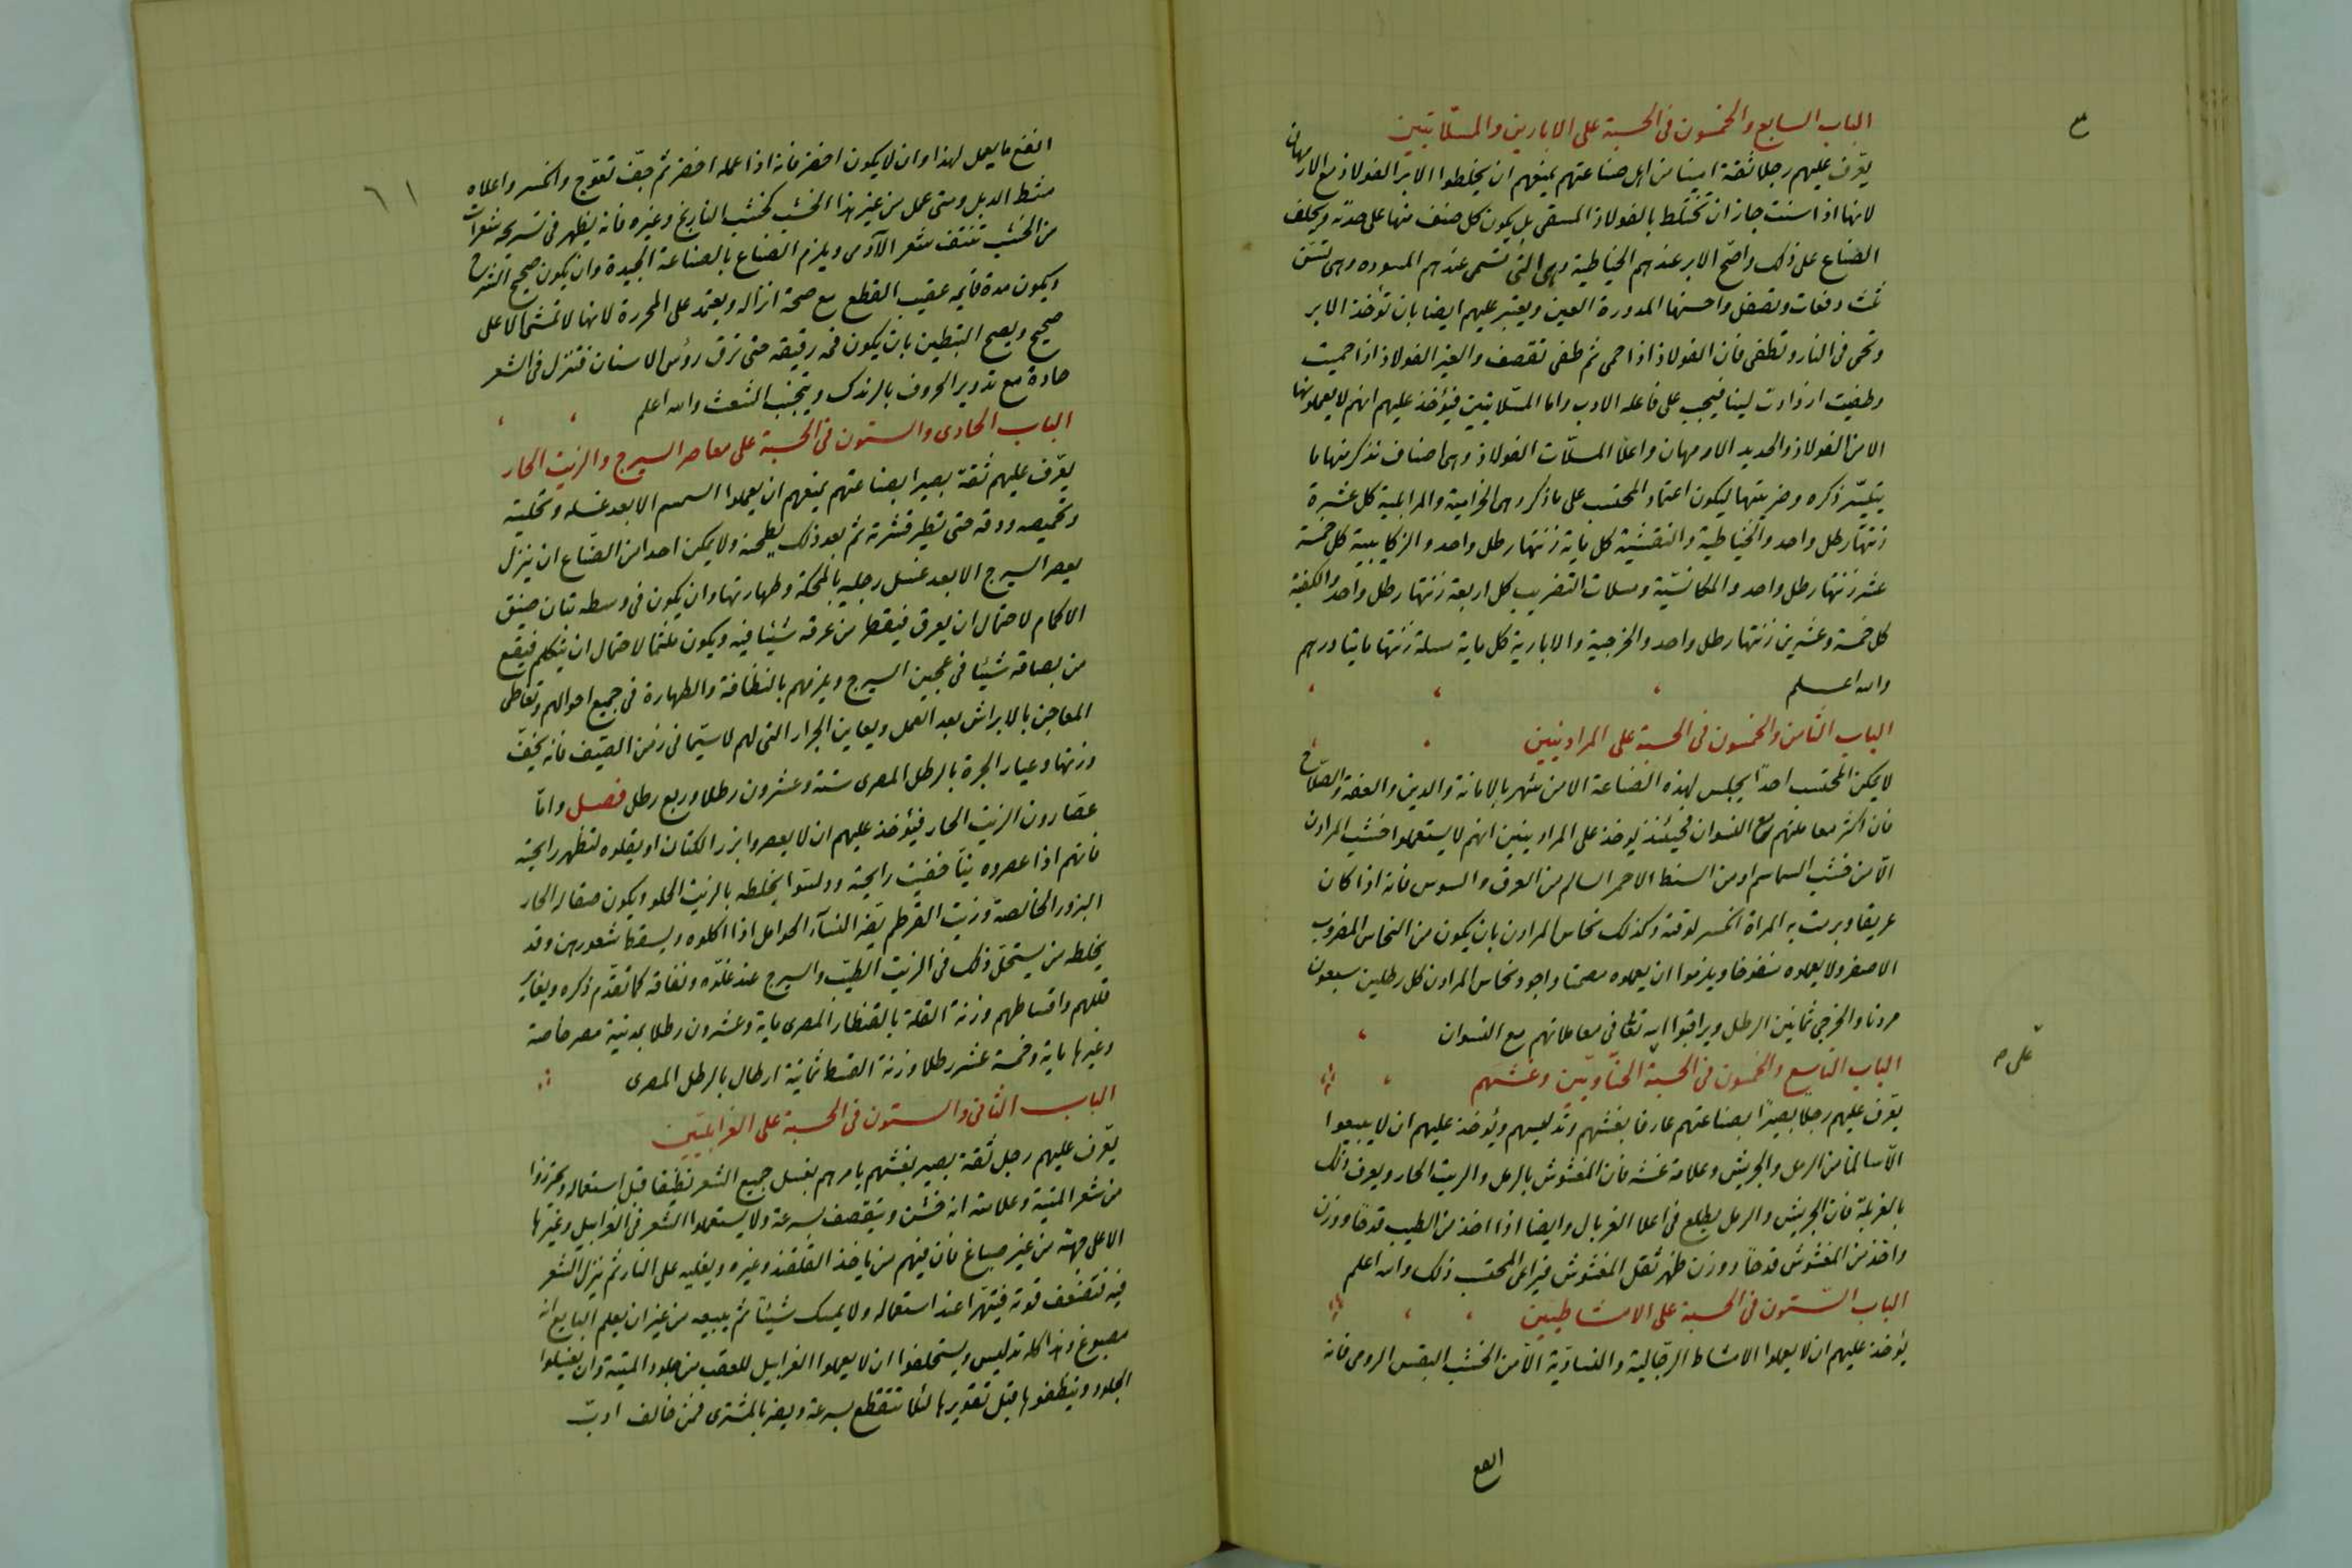 الباب السابع والخمسون فى الحسبة على الابارين والمسلّاتيين
يعرّف عليهم رجلا ثقة امينا من اهل صناعتهم يمنعهم ان يخلطوا الابر الفولاذ مع الارمهان
لانها اذا سنت جاز ان تختلط بالفولاذ المسقى بل يكون كل صنف منها على حدته ويحلف
الصناع على ذلك واصح الابر عندهم الخياطية وهى التى تسمى عندهم المبوده وهى تسنّ
ثلث دفعات وتصقل واحسنها المدورة العين ويعتبر عليهم ايضا بان تؤخذ الابر
وتحمى فى النار وتطفى فان الفولاذ اذا حمى ثم طفى تقصف والغير الفولاذ اذا حميت
وطفيت ازدادت لينا فيجب على فاعله الادب واما المسّلاتيين فيؤخذ عليهم انهم لا يعملونها
الا من الفولاذ والحديد الارمهان واعلا المسلّات الفولاذ وهى اصناف نذكر منها ما
يتيسّر ذكره وضريبتها ليكون اعتماد المحتسب على ما ذكر وهى الخزامية والمرابمية كل عشرة
زنتها رطل واحد والخياطية والنقشية كل ماية زنتها رطل واحد والركابيية كل خمسة
عشر زنتها رطل واحد والمكانسيّة ومسلات التضريب كل اربعة زنتها رطل واحد والكيفية
كل خمسة وعشرين زنتها رطل واحد والخرجية والابارية كل ماية مسلة زنتها مايتا درهم
والله اعـــلم
الباب الثامن والخمسون فى الحسبة على المرادنيين
لا يمكن المحتسب احدًا يجلس لهذه الصناعة الا من شهر بالامانة والدين والعفة والصلاح
فان اكثر معاملتهم مع النسوان فحينئذ يوخذ على المرادينين انهم لا يستعملوا خشب المرادن
الّا من خشب السماسم او من السنط الاحمر السالم من العرق والسوس فانه اذا كان
عريقا وبرمت به المراة انكسر لوقته وكذلك نحاس المرادن بان يكون من النحاس المضروب
الاصفر ولا يعملوه منفوخا ويلزموا ان يعملوه مصمتا واجود نحاس المرادن كل رطلين سبعون
مردنا والخرجى ثمانين الرطل ويراقبوا الله تعالى فى معاملاتهم مع النسوان
الباب التاسع والخمسون فى الحسبة الحناويّين وغشهم
على صح
يعرّف عليهم رجلا بصيرًا بصناعتهم عارفا بغشهم وتدليسهم ويؤخذ عليهم ان لا يبيعوا
الّا سالما من الرمل والجريش وعلامة غشه فان المغشوش بالرمل والزيت الحار ويعرف ذلك
بالغربلة فان الجريش والرمل يطلع فى اعلا الغربال وايضا اذا اخذ من الطيب قدحًا ووزن
واخذ من المغشوش قدحًا ووزن ظهر ثقل المغشوش فيراعى المحتسب ذلك والله اعلم
الباب السّتون فى الحسبة على الامشاطيين
يؤخذ عليهم ان لا يعملوا الامشاط الرجّالية والنساويّة الّا من الخشب البقس الرومى فانه
٦١
انفع ما يعمل لهذا وان لا يكون اخضر فانه اذا عمله اخضر ثم جفّ تعوّج وانكسر واعلاه
مشط الدبل ومتى عمل من غير هذا الخشب كخشب النارنج وغيره فانه يظهر فى تسريحه شعرات
من الخشب تنتف شعر الآدمى ويلزم الصناع بالصناعة الجيدة وان يكون صحيح
ويكون مدة قايمة عقيب القطع مع صحة انزاله ويعتمد على المحررة لانها لا تمشى الا على
صحيح ويصح التبطين بان يكون فمه رقيقه حتى ترق رؤس الاسنان فتنزل فى الشعر
حادة مع تدوير الحروف بالرندك ويتجنب الشعث والله اعلم
الباب الحادى والستون فى الحسبة على معاصر السيرج والزيت الحار
يعرّف عليهم ثقة بصيرا بصناعتهم يمنعهم ان يعملوا السمسم الا بعد غسله وتحليته
وتحميصه ودقه حتى يطير قشرته ثم بعد ذلك يطحنه ولا يمكن احدا من الصنّاع ان ينزل
يعصر السيرج الا بعد غسل رجليه بالمحكة وطهارتها وان يكون فى وسطه تبان ضيق
الاكمام لاحتمال ان يعرق فيقطر من عرقه شيئا فيه ويكون ملثما لاحتمال ان يتكلم فيقع
من بصاقه شيئا فى عجين السيرج ويلزمهم بالنظافة والطهارة فى جميع احوالهم وتغاطى
المعاجن بالابراش بعد العمل ويعاين الجرار التى لهم لا سيّما فى زمن الصّيف فانه يخفّ
وزنها وعيار الجرة بالرطل المصرى ستة وعشرون رطلا وربع رطل فصل وامّا
عصّارون الزيت الحار فيؤخذ عليهم ان لا يعصروا بزر الكتان او يقلوه لتظهر رايحته
فانهم اذا عصروه نيّا خفيت رايحته وولسوا بخلطه بالزيت الحلو ويكون صفار الحار
البزور الخالصة وزيت القرطم يضر النسآء الحوامل اذا اكلوه ويسقط شعورهن وقد
يخلطه من يستحل ذلك فى الزيت الطيّب والسيرج عند غلوّه ونفاقه كما تقدّم ذكره ويعاير
قللهم واقساطهم وزنة القلة بالقنطار المصرى ماية وعشرون رطلا بمدينة مصر خاصة
وغيرها ماية وخمسة عشر رطلا وزنة القسط ثمانية ارطال بالرطل المصرى
الباب الثانى والستون فى الحسبة على الغرابليّين
يعرّف عليهم رجل ثقة بصير بغشهم يامرهم بغسل جميع الشعر نظيفا قبل استعماله ويحترزوا
من شعر الميتة وعلامته انه خشن ويتقصف بسرعة ولا يستعملوا الشعر فى الغرابيل وغيرها
الا على جهته من غير صباغ فان فيهم من ياخذ القلقند وغيره ويغليه على النار ثم ينزل الشعر
فيه فتضعف قوته فيتهرا عند استعماله ولا يمسك شيئًا ثم يبيعه من غير ان يعلم البايع انه
مصبوغ وهذا كله تدليس ويستحلفوا ان لا يعملوا الغرابيل للعقب من جلود الميتة وان يغسلوا
الجلود وينظفوها قبل تقويرها لئلا تتقطع بسرعة ويضر بالمشترى فمن خالف ادبّ